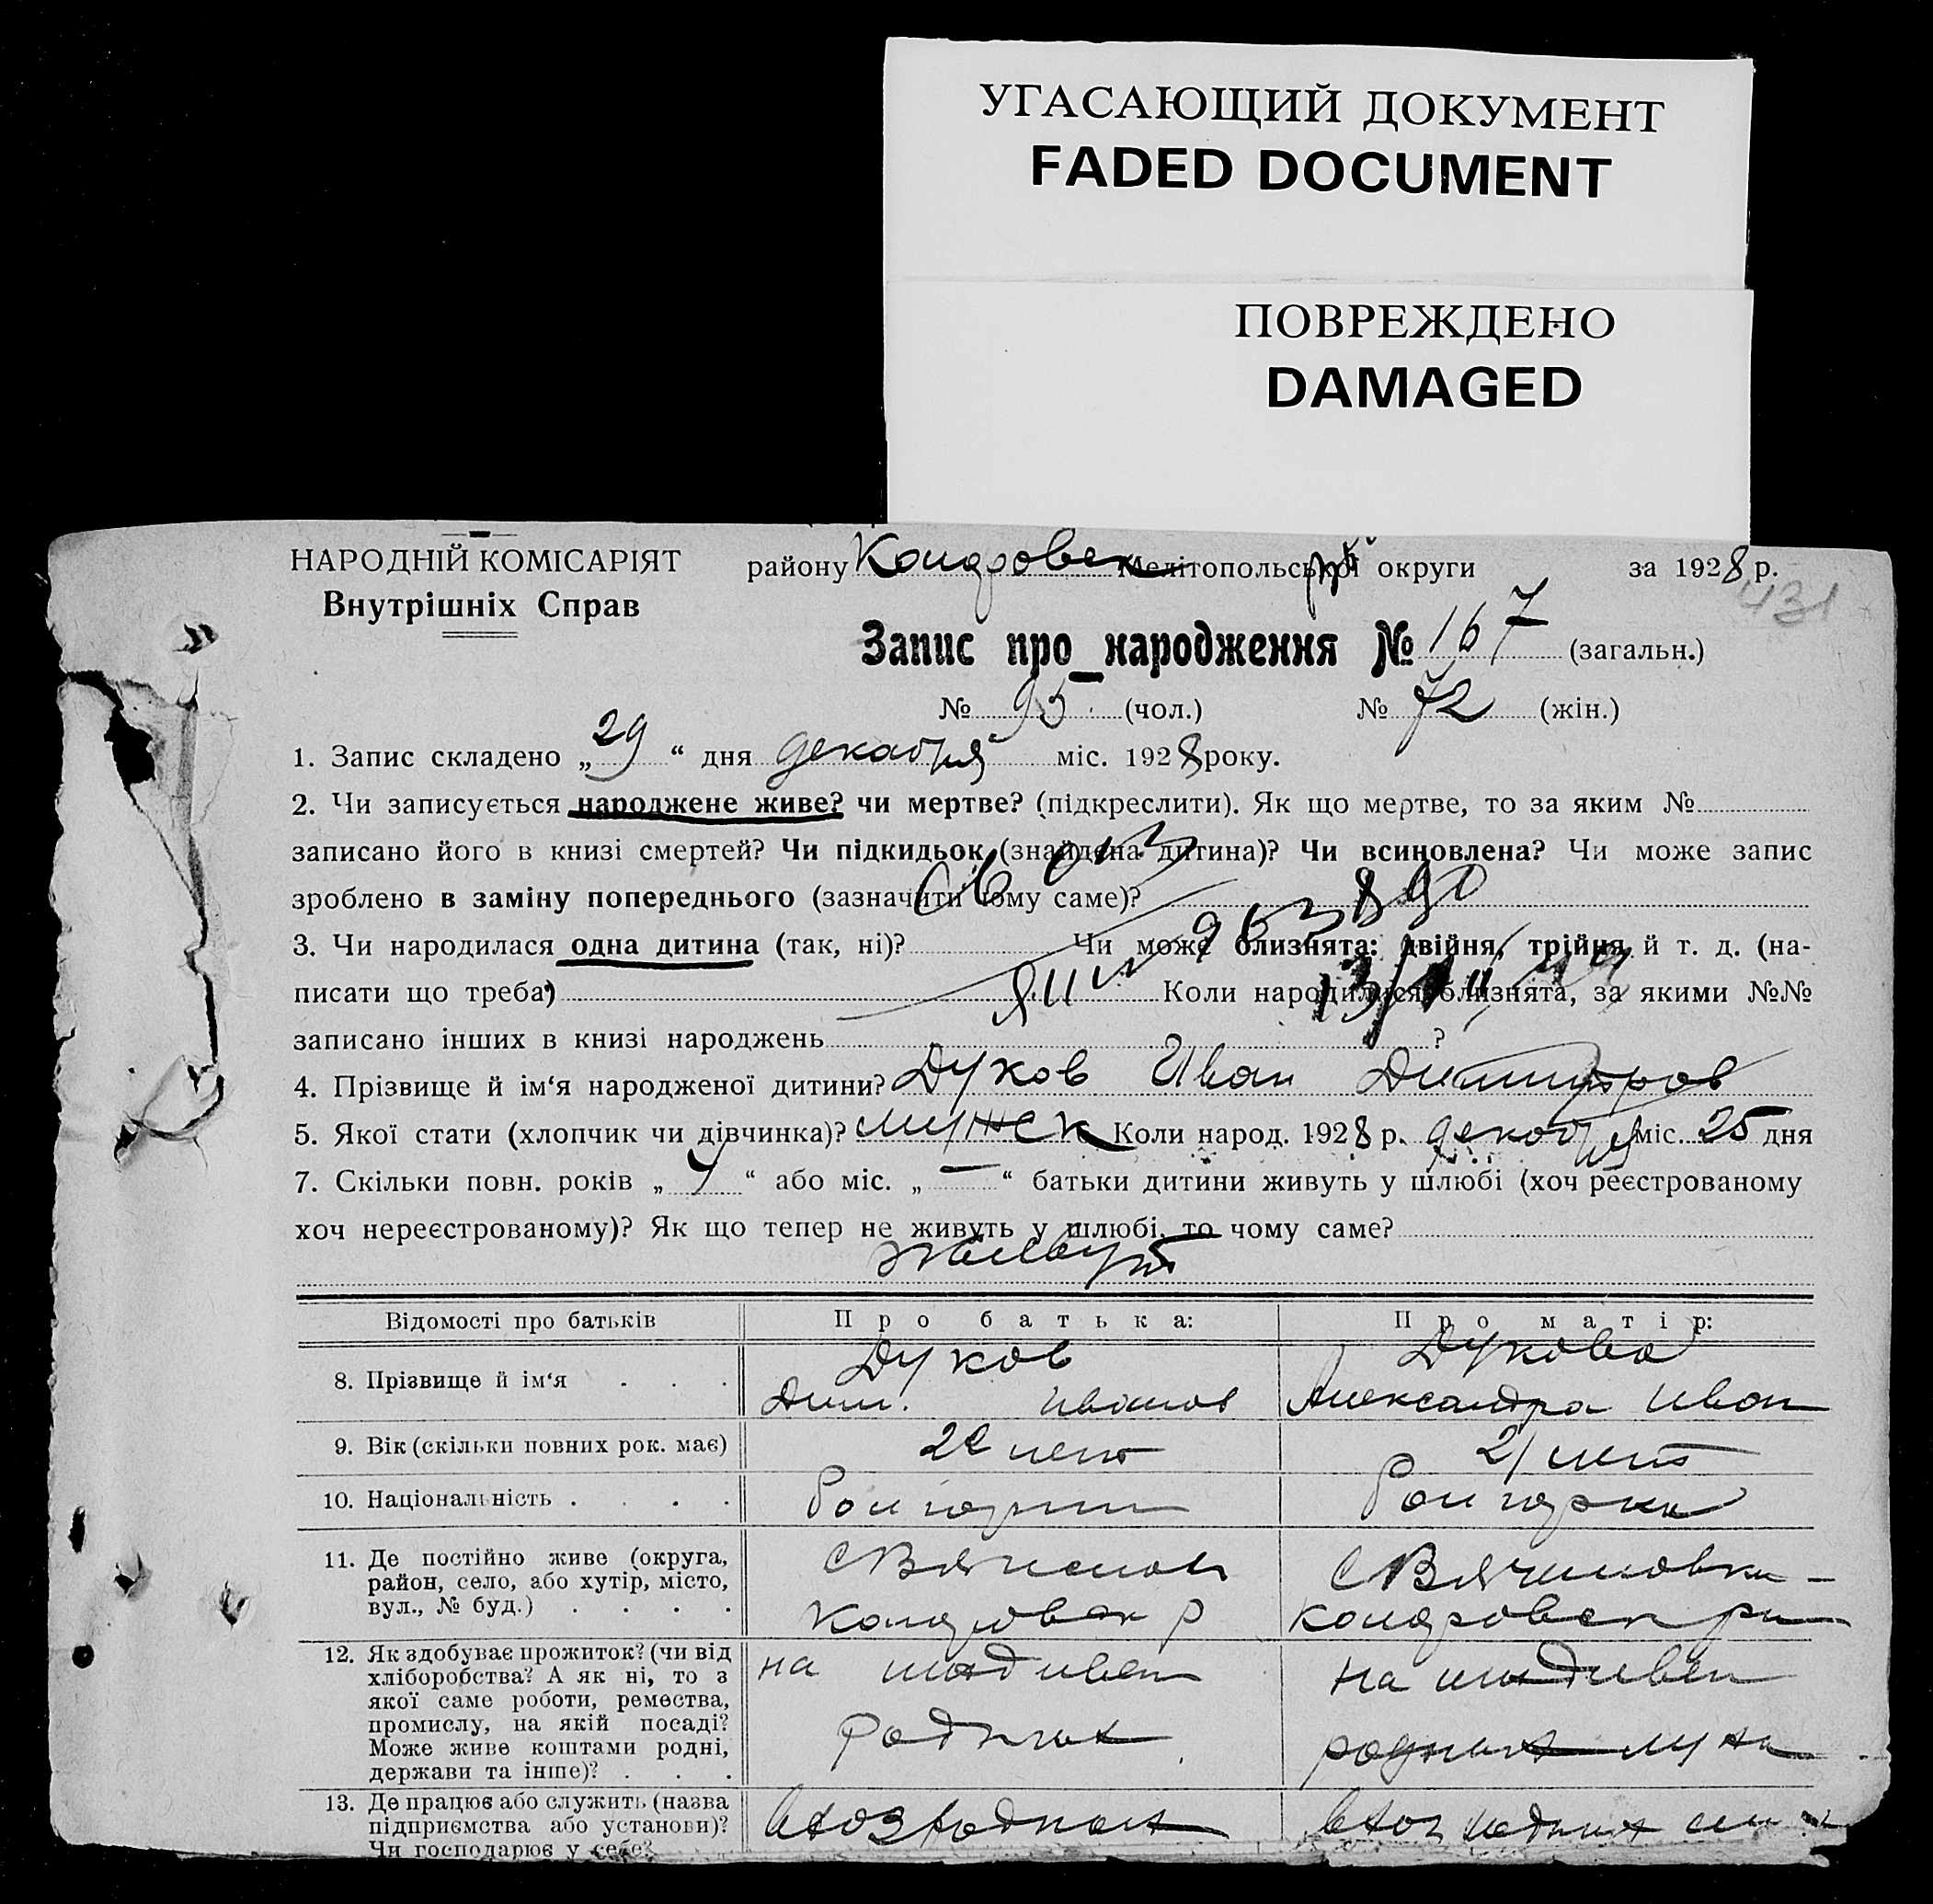 УГАСАЮЩИЙ ДОКУМЕНТ
FADED DOCUMENT
ПОВРЕЖДЕНО
DAMAGED
НАРОДНІЙ КОМІСАРІЯТ
Внутрішніх Справ
району Мелітопольської округи за 1928 р.
431
Запис про народження № 167 (загальн.)
№ 95 (чол.) № 72 (жін.)
1. Запис складено „ 29 “ дня декабря міс. 1928 року.
2. Чи записується народжене живе? чи мертве? (підкреслити). Як що мертве, то за яким №
записано його в книзі смертей? Чи підкидьок (знайдена дитина)? Чи всиновлена? Чи може запис
зроблено в заміну попереднього (зазначити чому саме)?
3. Чи народилася одна дитина (так, ні)? Чи може близнята: двійня, трійня й т. д. (на-
писати що треба) Коли народилися близнята, за якими №№
записано інших в книзі народжень ?
4. Прізвище й ім‘я народженої дитини? Дуков Иван
5. Якої стати (хлопчик чи дівчинка)? мужск Коли народ. 1928 р. декабря міс. 25 дня
7. Скільки повн. років „ “ або міс. „ — “ батьки дитини живуть у шлюбі (хоч реєстрованому
хоч нереєстрованому)? Як що тепер не живуть у шлюбі, то чому саме?
живут
Відомості про батьків Про батька: Про матір:
8. Прізвище й ім‘я Дуков Дукова
Дим. Иванов Александра Иван
9. Вік (скільки повних рок. має) лет 21 лет
10. Національність болгарин болгарка
11. Де постійно живе (округа,
район, село, або хутір, місто,
вул., № буд.)
12. Як здобуває прожиток? (чи від
хліборобства? А як ні, то з
якої саме роботи, ремества,
промислу, на якій посаді?
Може живе коштами родні,
держави та інше)?
на иждивен на иждивен
родных родных мужа
13. Де працює або служить (назва
підприємства або установи)?
Чи господарює у себе?